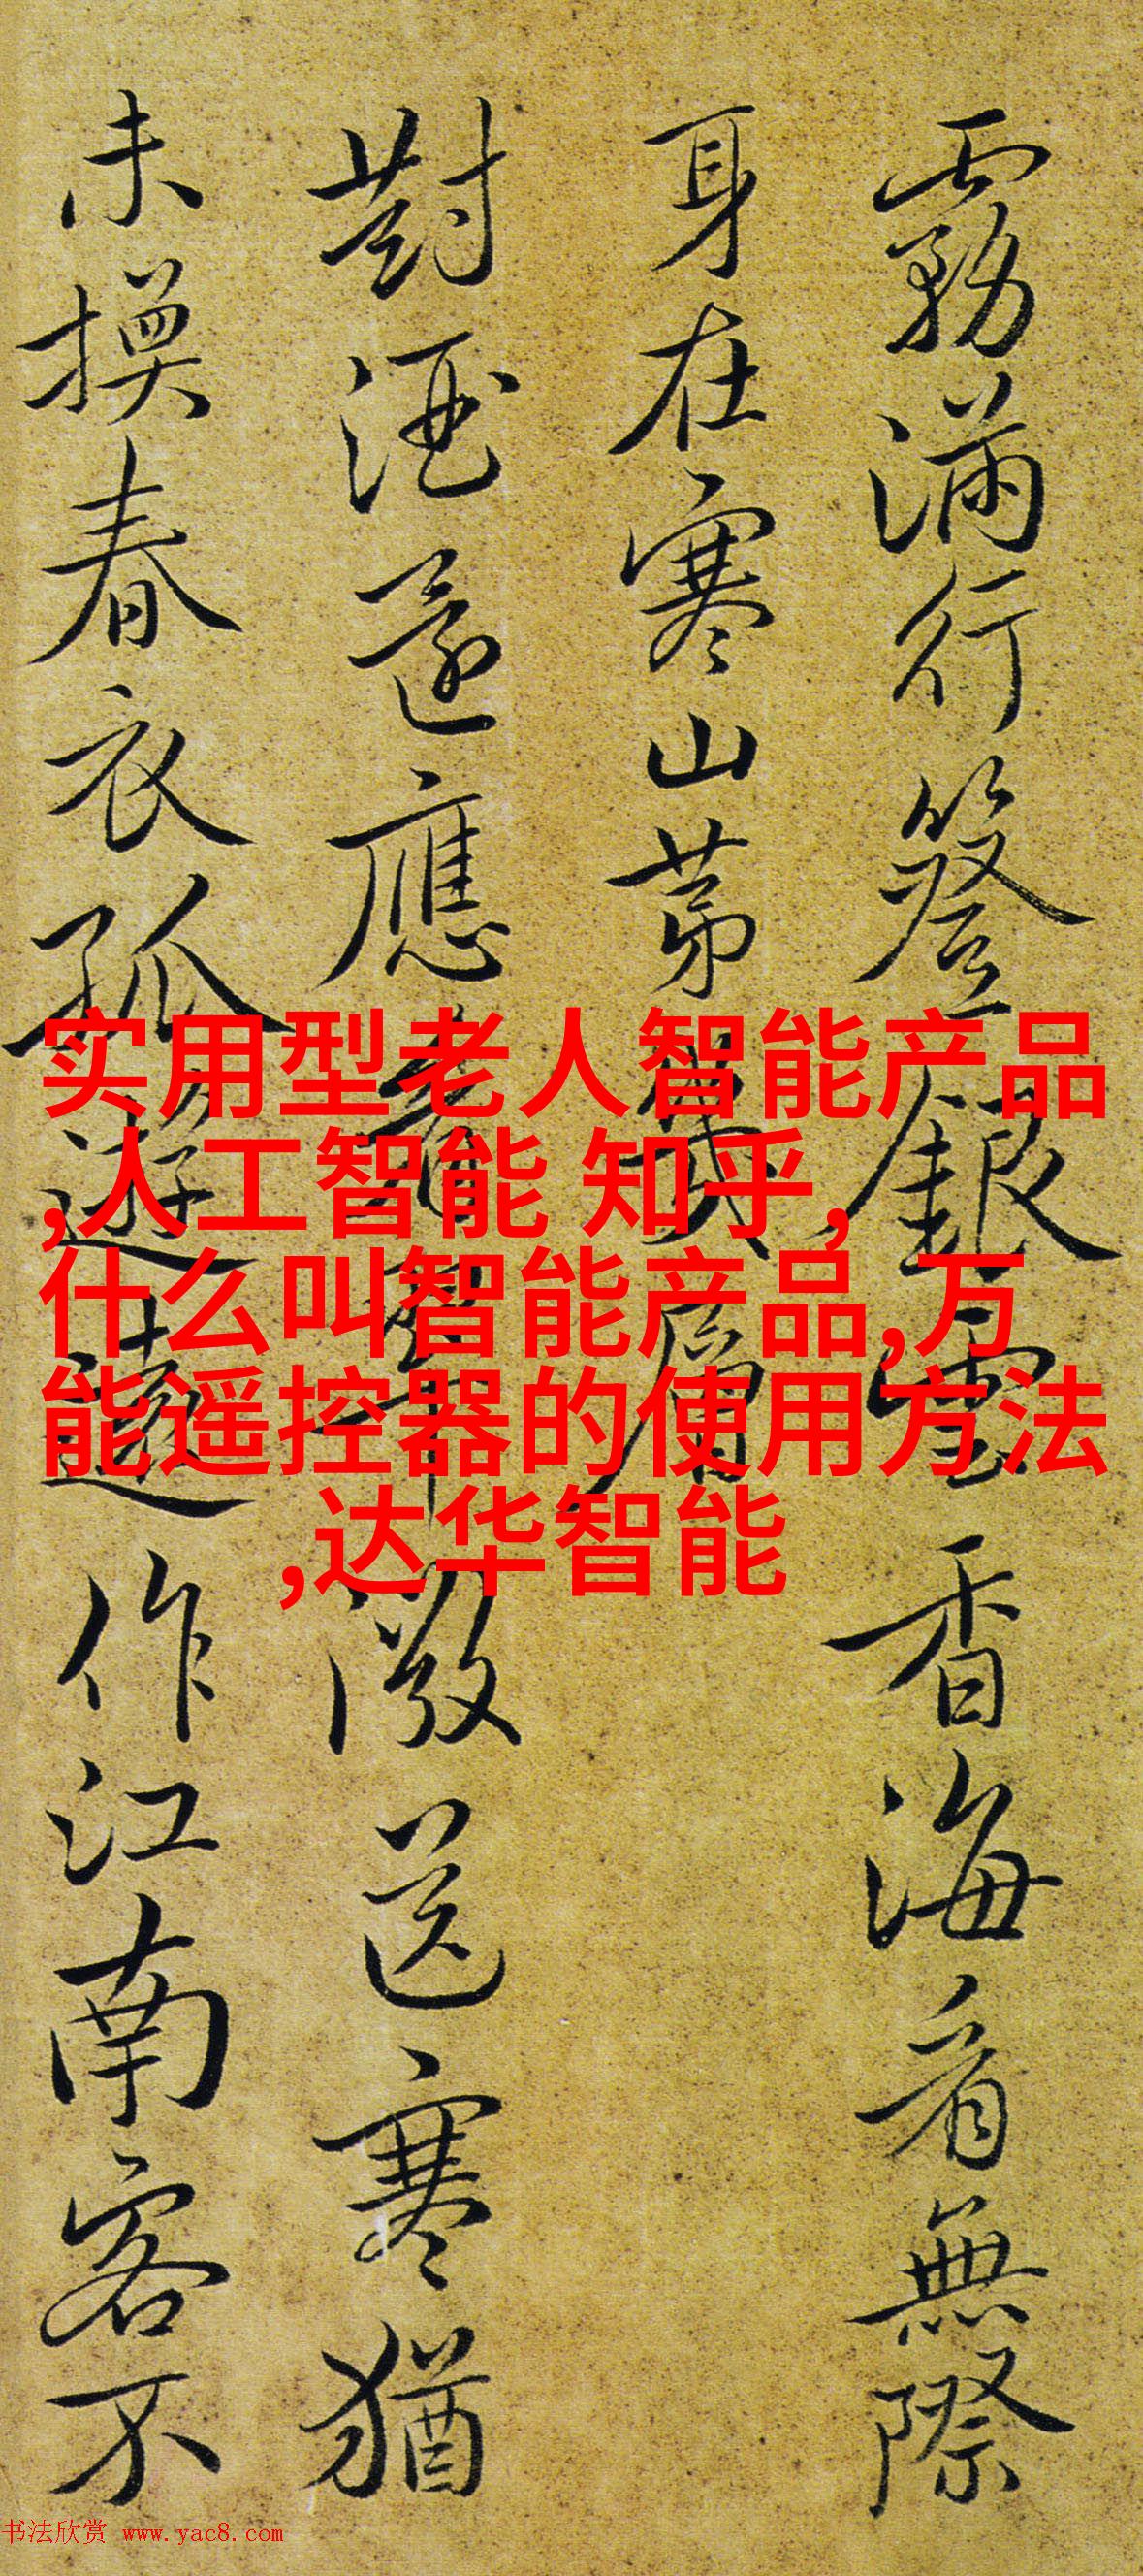 霧滿行簦銀雲香海看無際
身在寒山苐幾層
對酒還應送寒猶
未換春衣孤遊遠作江南客不
实用型老人智能产品
,人工智能 知乎 ,
什么叫智能产品,万
能遥控器的使用方法
,达华智能
书法欣赏 www.yac8.com